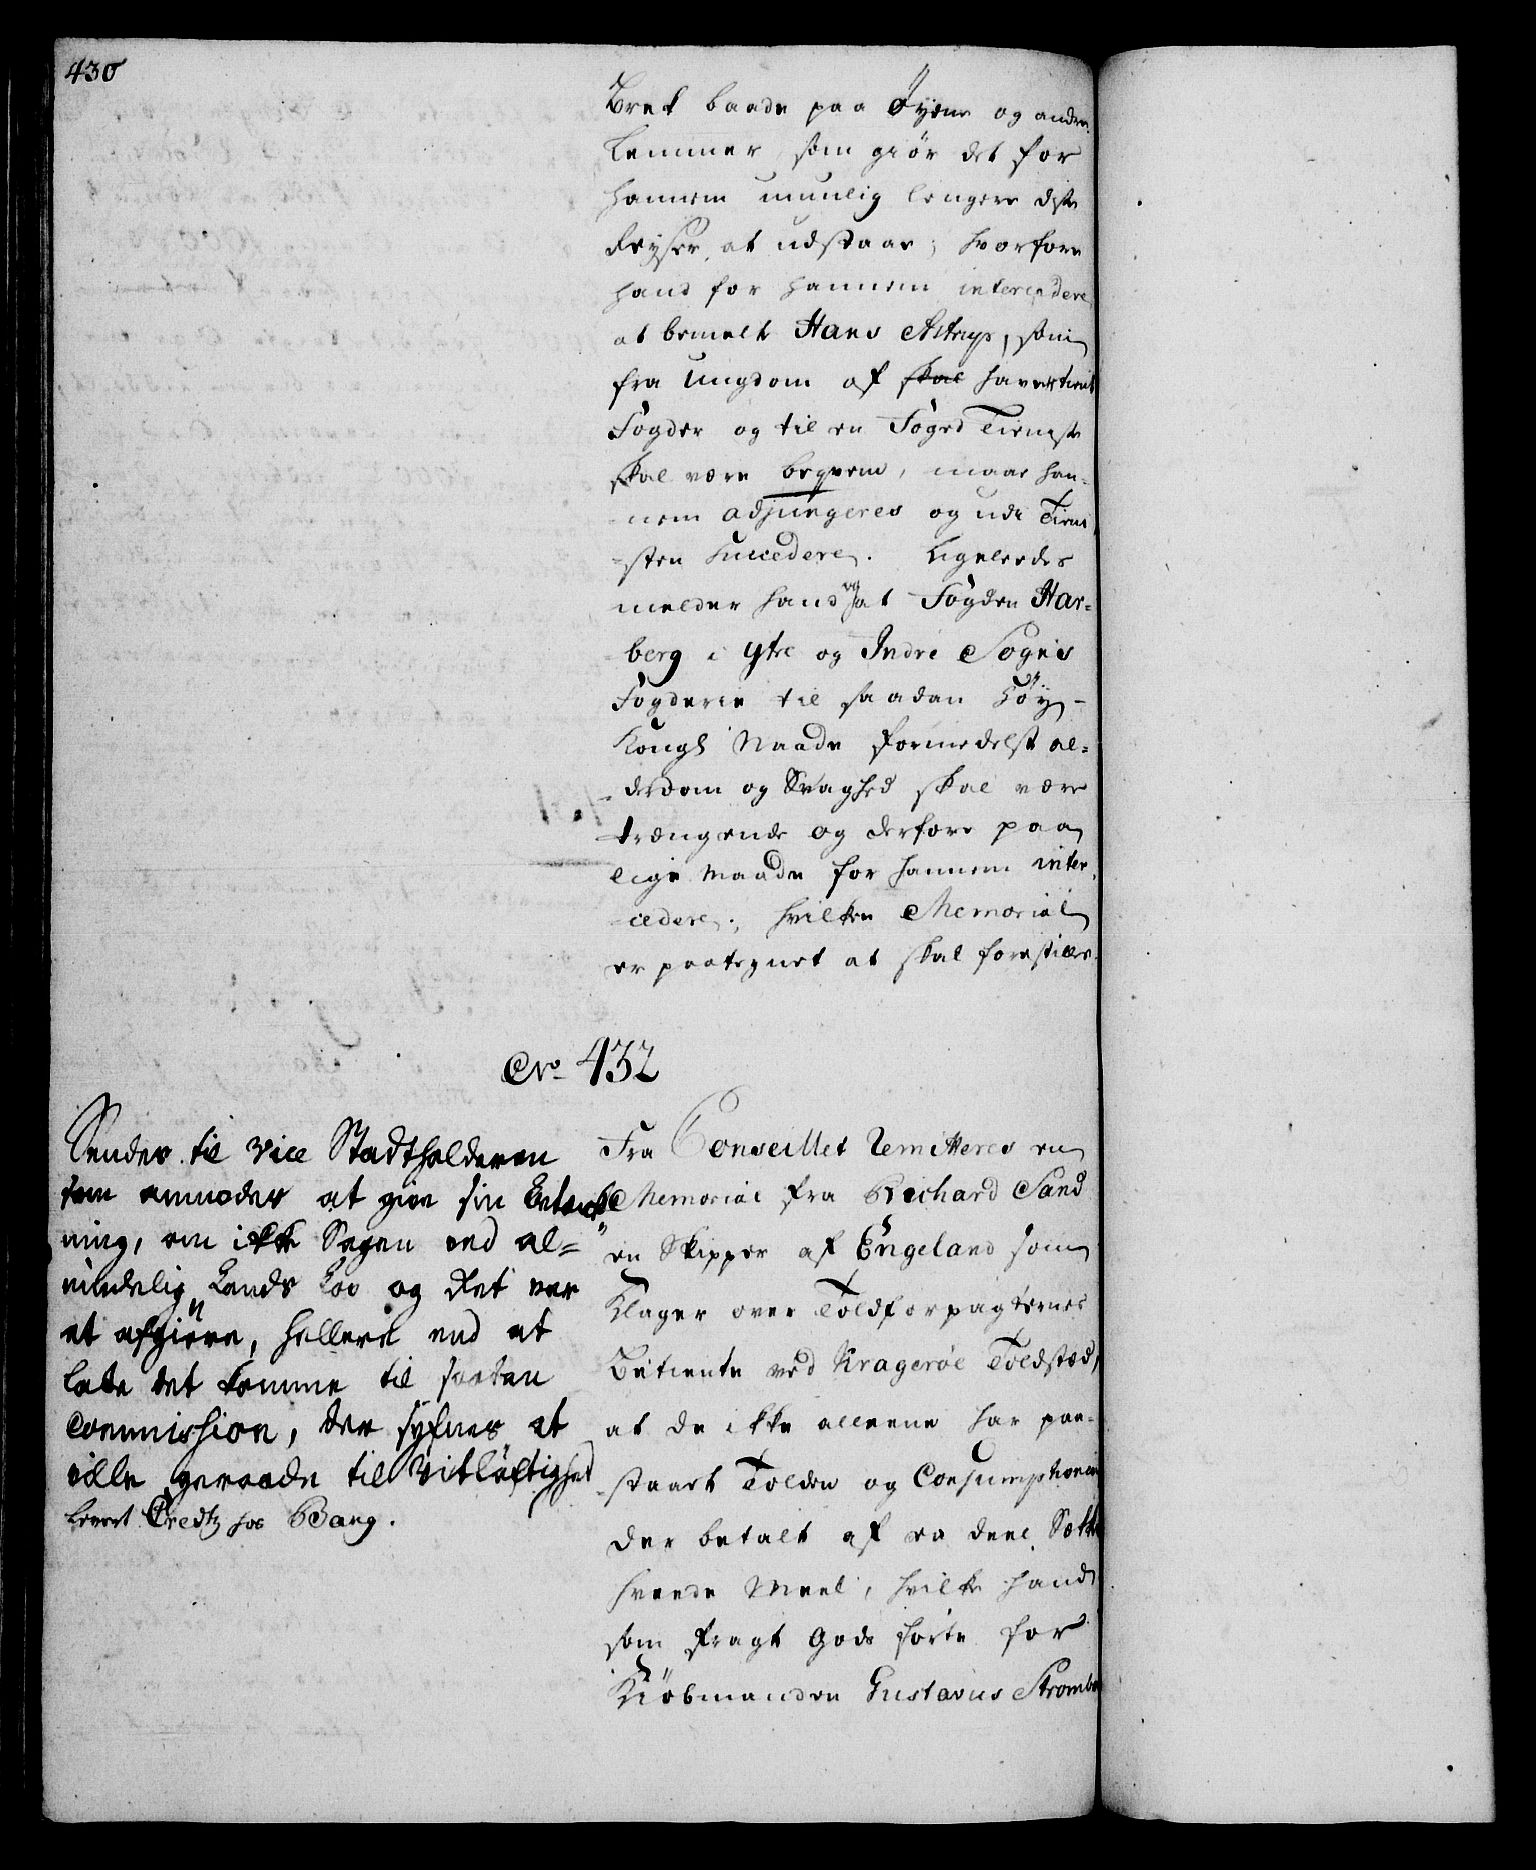 430
Bræk baade paa Øyene og andre
Lemmer, som giör det for
hannem umulig lengere diste
Reyser at udstaae; hvorfore
hand for hannem intercedere
at bemelte Hans Astrup, som
fra Ungdom af skal have tient
Fogder og til en Foged Tieneste
skal være beqvem, maae han-
nem adjungeres og udi Tieni
-sten Succedere. Ligeledes
melder hand og at Fogden Har-
berg i Ytre og Indre Sogns
Fogderie til saadan Höy-
Kongl Naade formedelst al-
derdom og Svaghed skal være
trængende og derfore paa
lige Maade for hannem inter
-cedere; hvilken Memorial
er paategnet at skal forestilles.
No 432
Sendes til Vice Stadtholderen
som anmodes at give sin Betænk
ning, om ikke Sagen ved al-
mindelig Lands Lov og Ret var
at afgiöre, hellere end at
lade det komme til saadan
Commission, der synes at
ville geraade til Vitlöftighed
levert Credtz hos Bang.
Fra Conseillet Remitteres en
Memorial fra Richard Sand
en Skipper af Engeland som
Klager over Toldforpagternes
Betiente ved Kragerøe Toldsted,
at de ikke alleene har paa-
staaet Tolden og Consumptionen
der betalt af en deel Sække
hvede Meel, hvilke hand
som fragt Gods förte for
Kiöbmanden Gustavus Strombo